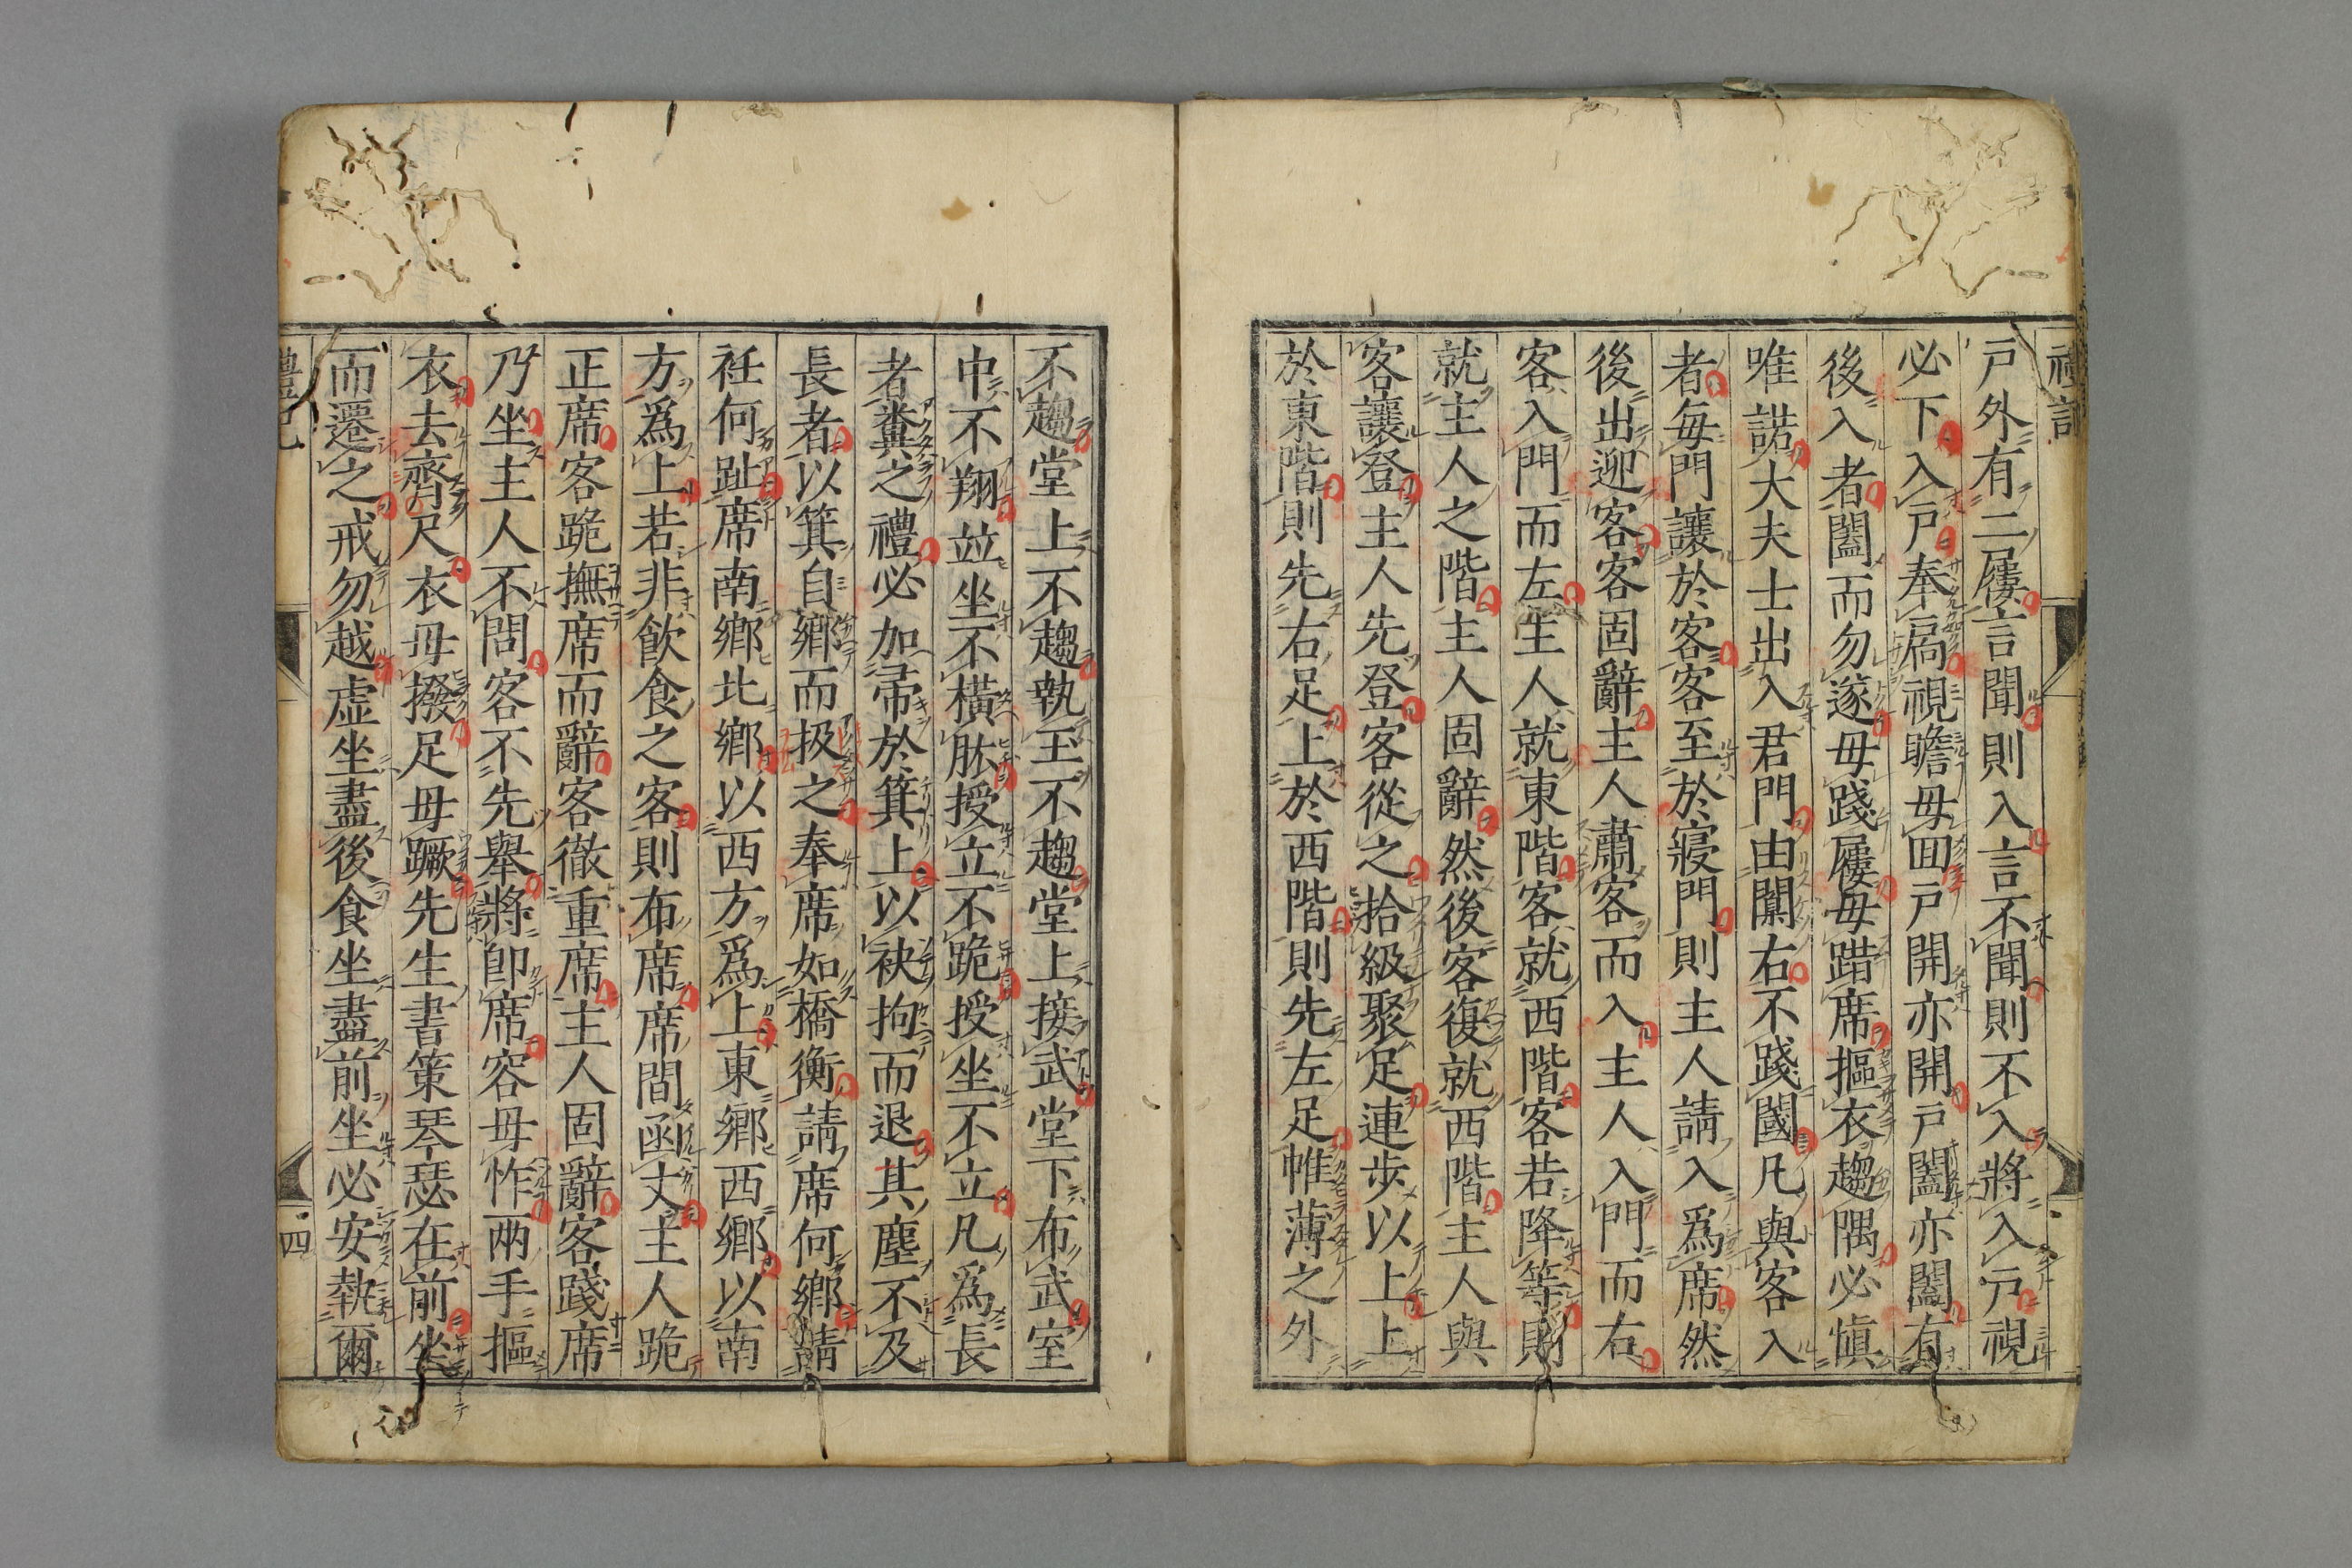 禮記
戸外有二屨言聞則入言不聞則不入將入戸視
必下入戸奉扃視瞻毋回戸開亦開戸闔亦闔有
後入者闔而勿遂毋踐屨毋踖席摳衣趨隅必愼
唯諾大夫士出入君門由闑右不踐閾凡與客入
者毎門讓於客客至於寢門則主人請入爲席然
後出迎客客固辭主人肅客而入主人入門而右
客入門而左主人就東階客就西階客若降等則
就主人之階主人固辭然後客復就西階主人與
客讓登主人先登客從之拾級聚足連歩以上上
於東階則先右足上於西階則先左足帷薄之外
不趨堂上不趨執玉不趨堂上接武堂下布武室
中不翔並坐不橫肱授立不跪授坐不立凡爲長
者糞之禮必加帚於箕上以袂拘而退其塵不及
長者以箕自鄉而扱之奉席如橋衡請席何鄉請
衽何趾席南鄉北鄉以西方爲上東鄉西鄉以南
方爲上若非飮食之客則布席席間函丈主人跪
正席客跪撫席而辭客徹重席主人固辭客踐席
乃坐主人不問客不先舉將卽席容毋怍兩手摳
衣去齊尺衣毋撥足毋蹶先生書策琴瑟在前坐
而遷之戒勿越虚坐盡後食坐盡前坐必安執爾
禮記
四